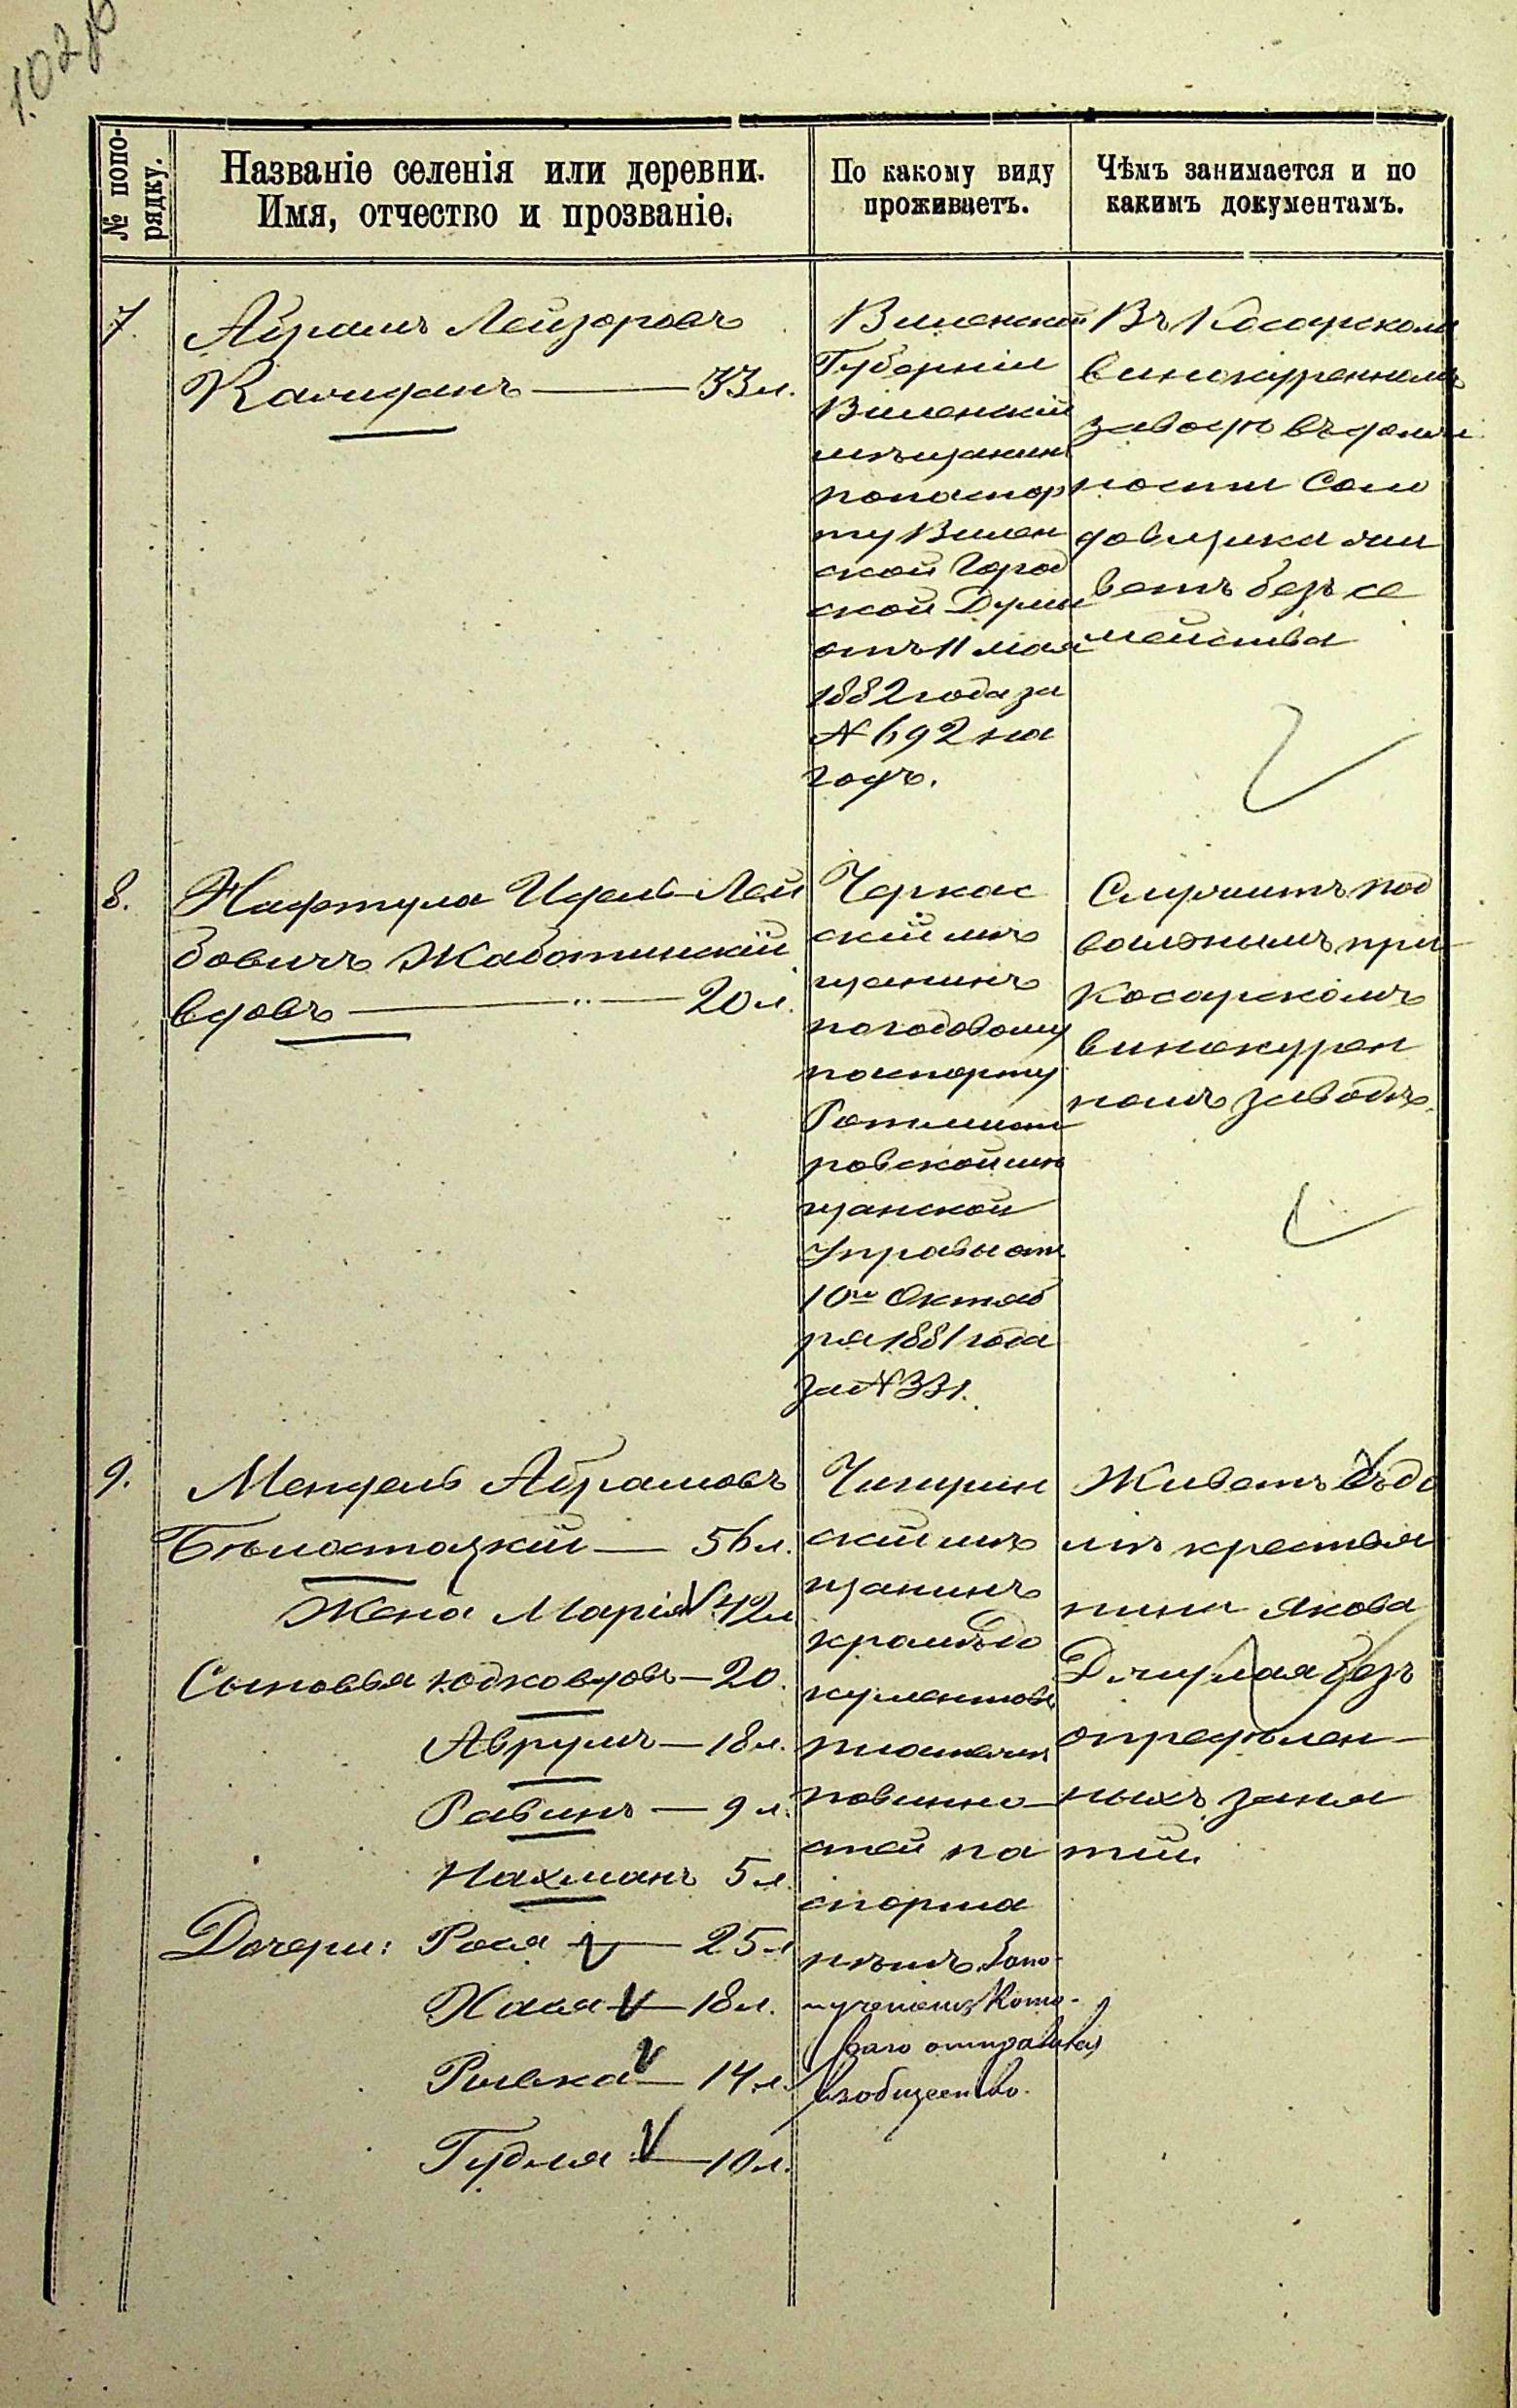 102
№ попо-
рядку.
Названіе селенія или деревни.
Имя, отчество и прозваніе.
По какому виду
проживаетъ.
Чѣмъ занимается и по
какимъ документамъ.
7.
Абрамъ Лейзоровъ
Калманъ — 33 л.
Виленской
Губерніи
Виленскій
мѣщанинъ
по паспор
ту Вилен
ской Город
ской Думы
отъ 11 мая
1882 года за
№ 692 на
годъ.
Въ Косарскомъ
винокуренномъ
заводѣ въ должн
ности Соло
довщика жи
ветъ безъ се
мейства
8.
Нафтула Идель-Лей
бовичъ Жаботинскій
вдовъ — 20 л.
Черкас
скій мѣ
щанинъ
по годовому
паспорту
Ротмист
ровской мѣ
щанской
Управы отъ
10го Октяб
ря 1881 года
за № 331.
Служитъ под
вальнымъ при
Косарскомъ
винокурен
номъ заводѣ.
9.
Мендель Абрамовъ
Бѣлостоцкій — 56 л.
Жена Марія 42 л
Сыновья Юдко вдовъ — 20.
Аврумъ — 18 л.
Рабинъ — 9 л.
Нахманъ 5 л.
Дочери: Рося — 25 л
Хася — 18 л.
Ривка — 14 л.
Гудля — 10 л.
Чигирин
скій мѣ
щанинъ
кромѣ до
кументовъ
платежа
повинно-
стей па
спорта
нѣтъ. За по-
лученіемъ кото-
раго отправился
въ общество.
Живетъ въ до
мѣ крестья
нина Якова
безъ
опредѣлен-
ныхъ заня
тій.